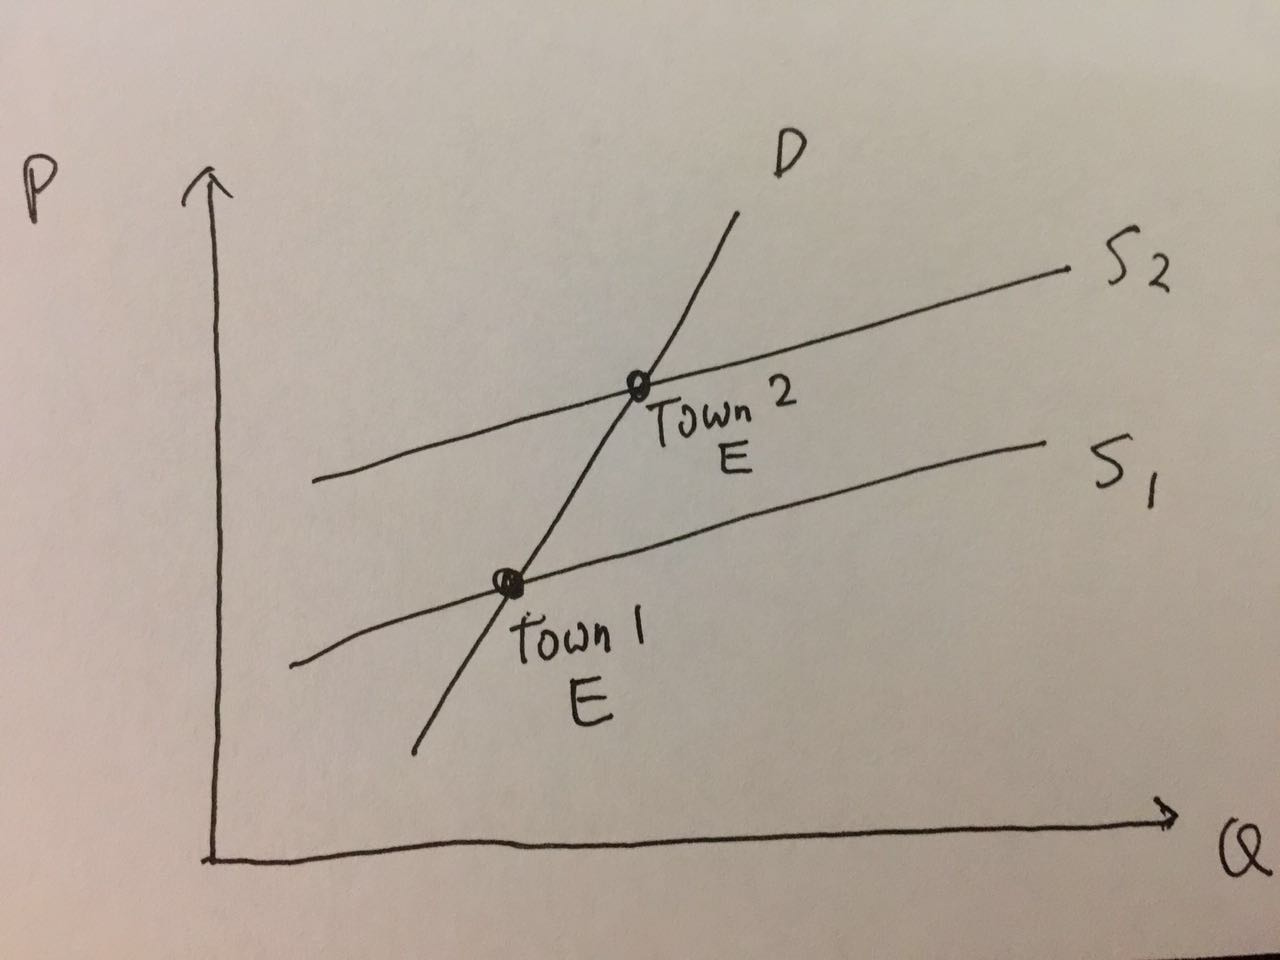 P
D
S2
Town 2
E
S1
Town 1
E
Q